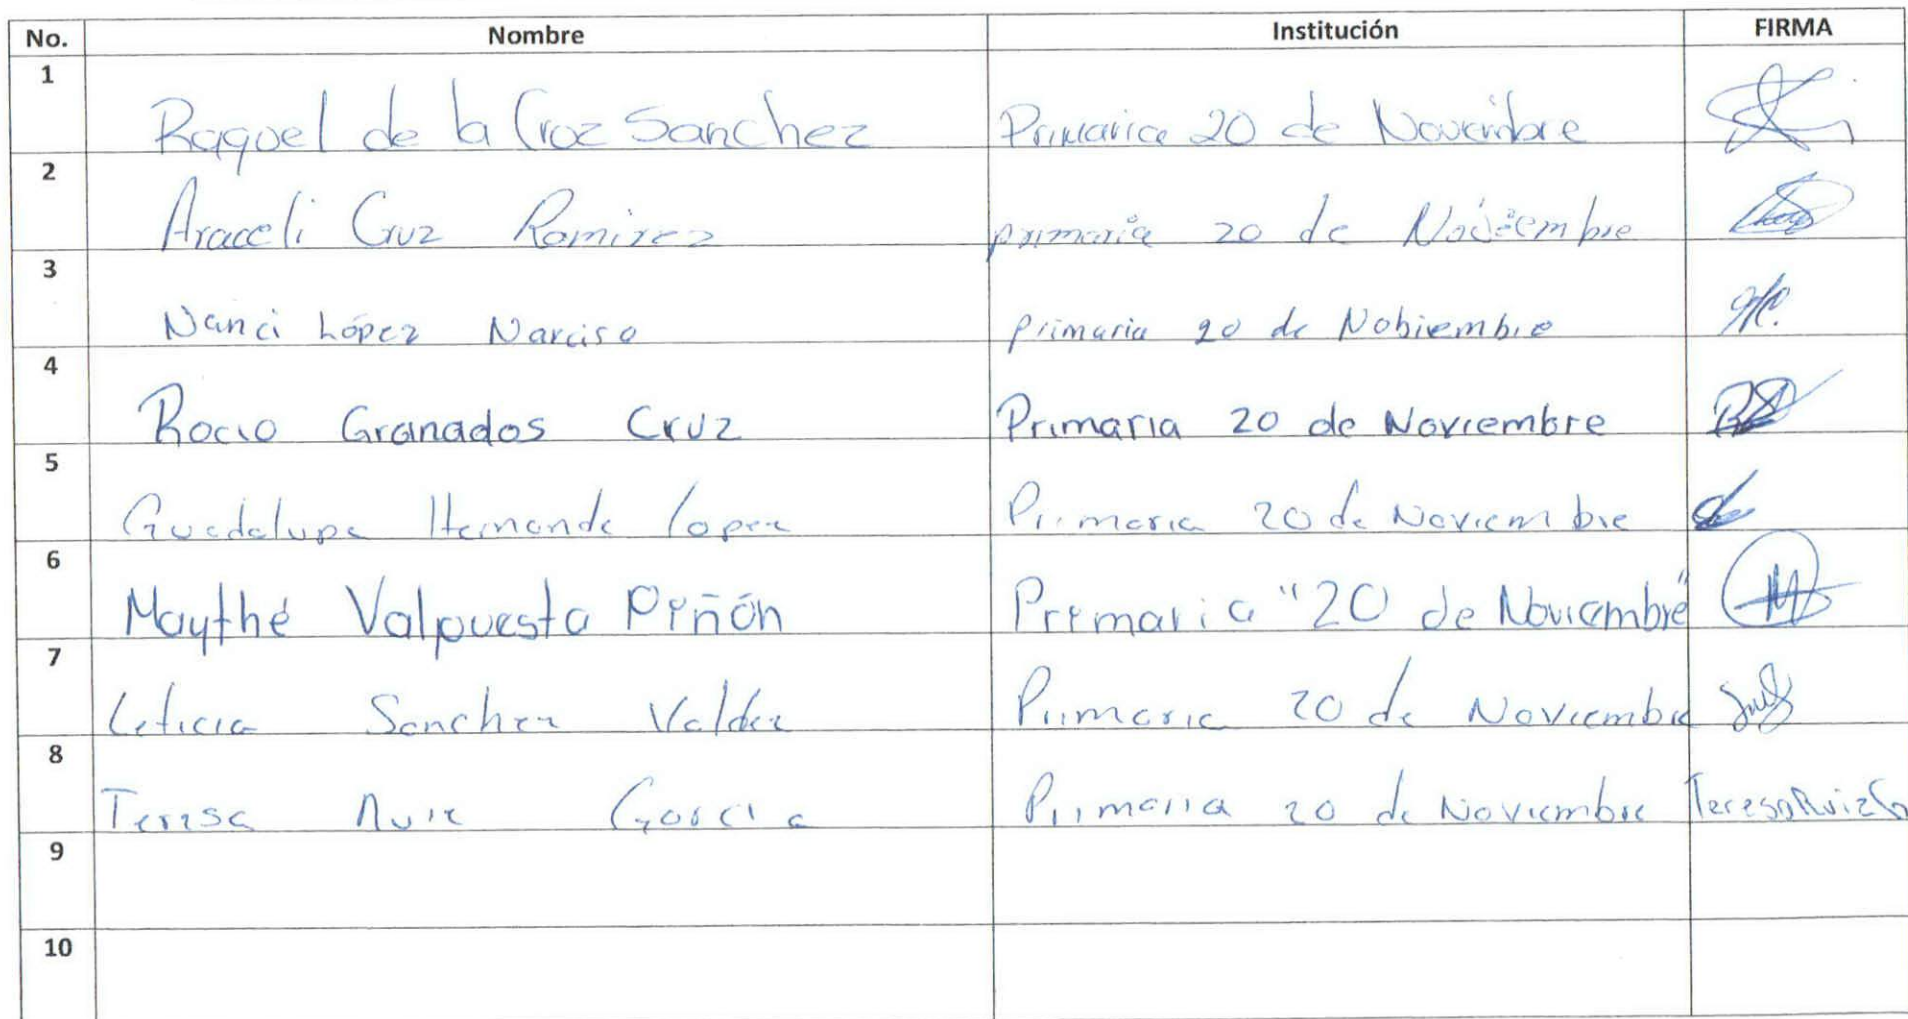 No. Nombre Institución FIRMA
1 Raquel de la Cruz Sanchez Primaria 20 de Noviembre
2 Araceli Cruz Ramirez primaria 20 de Noviembre
3 Nanci López Narciso primaria 20 de Nobiembre
4 Rocio Granados Cruz Primaria 20 de Noviembre
5 Guadalupe Hernande lopez Primaria 20 de Noviembre
6 Maythé Valpuesta Piñón Primaria "20 de Noviembre"
7 Leticia Sanchez Valdez Primaria 20 de Noviembre
8 Teresa Ruiz Garcia Primaria 20 de Noviembre Teresa Ruiz G
9
10